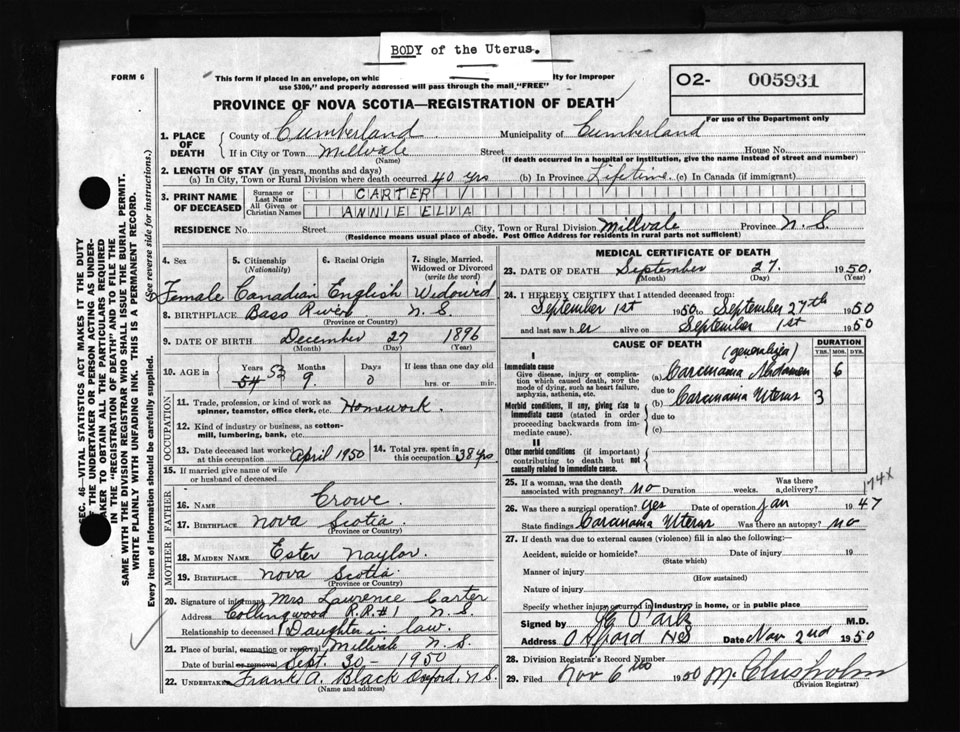 BODY of the Uterus.
FORM 6
This form if placed in an envelope, on which
lty for improper
use $300," and properly addressed will pass through the mail "FREE"
PROVINCE OF NOVA SCOTIA—REGISTRATION OF DEATH
02- 005931
For use of the Department only
SEC. 46—VITAL STATISTICS ACT MAKES IT THE DUTY
OF THE UNDERTAKER OR PERSON ACTING AS UNDER-
TAKER TO OBTAIN ALL THE PARTICULARS REQUIRED
IN THE "REGISTRATION OF DEATH" AND TO FILE THE
SAME WITH THE DIVISION REGISTRAR WHO SHALL ISSUE THE BURIAL PERMIT.
WRITE PLAINLY WITH UNFADING INK. THIS IS A PERMANENT RECORD.
Every item of information should be carefully supplied. (See reverse side for instructions.)
1. PLACE OF DEATH
County of Cumberland Municipality of Cumberland
If in City or Town Millvale Street House No.
(Name) (If death occurred in a hospital or institution, give the name instead of street and number)
2. LENGTH OF STAY (in years, months and days)
(a) In City, Town or Rural Division where death occurred 40 yrs (b) In Province Lifetime (c) In Canada (if immigrant)
3. PRINT NAME OF DECEASED
Surname or Last Name CARTER
All Given or Christian Names ANNIE ELVA
RESIDENCE No. Street City, Town or Rural Division Millvale Province N.S.
(Residence means usual place of abode. Post Office Address for residents in rural parts not sufficient)
4. Sex 5. Citizenship (Nationality) 6. Racial Origin 7. Single, Married, Widowed or Divorced (write the word)
Female Canadian English Widowed
8. BIRTHPLACE Bass River N.S.
(Province or Country)
9. DATE OF BIRTH December 27 1896
(Month) (Day) (Year)
10. AGE in Years Months Days If less than one day old
54 53 9 0 hrs. or min.
OCCUPATION
11. Trade, profession, or kind of work as spinner, teamster, office clerk, etc. Homework.
12. Kind of industry or business, as cotton-mill, lumbering, bank, etc.
13. Date deceased last worked at this occupation April 1950 14. Total yrs. spent in this occupation 38 yrs
15. If married give name of wife or husband of deceased
FATHER
16. Name Crowe
17. Birthplace Nova Scotia
(Province or Country)
MOTHER
18. Maiden Name Ester Naylor.
19. Birthplace Nova Scotia
(Province or Country)
20. Signature of informant Mrs Lawrence Carter
Address Collingwood R.R.#1 N.S.
Relationship to deceased Daughter in law.
21. Place of burial, cremation or removal Millvale N.S.
Date of burial or removal Sept. 30 - 1950
22. Undertaker Frank A. Black Oxford, N.S.
(Name and address)
MEDICAL CERTIFICATE OF DEATH
23. DATE OF DEATH September 27. 1950.
(Month) (Day) (Year)
24. I HEREBY CERTIFY that I attended deceased from:
September 1st 1950 to September 27th 1950
and last saw her alive on September 1st 1950
CAUSE OF DEATH DURATION
YRS. MOS. DYS.
I
Immediate cause
Give disease, injury or complication which caused death, not the mode of dying, such as heart failure, asphyxia, asthenia, etc.
(generalized)
(a) Carcinoma Abdomen 6
due to
(b) Carcinoma Uterus 3
Morbid conditions, if any, giving rise to immediate cause (stated in order proceeding backwards from immediate cause).
due to
(c)
II
Other morbid conditions (if important) contributing to death but not causally related to immediate cause.
174X
25. If a woman, was the death associated with pregnancy? No Duration weeks. Was there a delivery?
26. Was there a surgical operation? Yes Date of operation Jan 1947
State findings Carcinoma Uterus Was there an autopsy? No
27. If death was due to external causes (violence) fill in also the following:—
Accident, suicide or homicide? Date of injury 19
(State which)
Manner of injury
(How sustained)
Nature of injury
Specify whether injury occurred in industry, in home, or in public place
Signed by M.D.
Address Oxford NS Date Nov 2nd 1950
28. Division Registrar's Record Number
29. Filed Nov 6 1950 M. Chisholm
(Division Registrar)